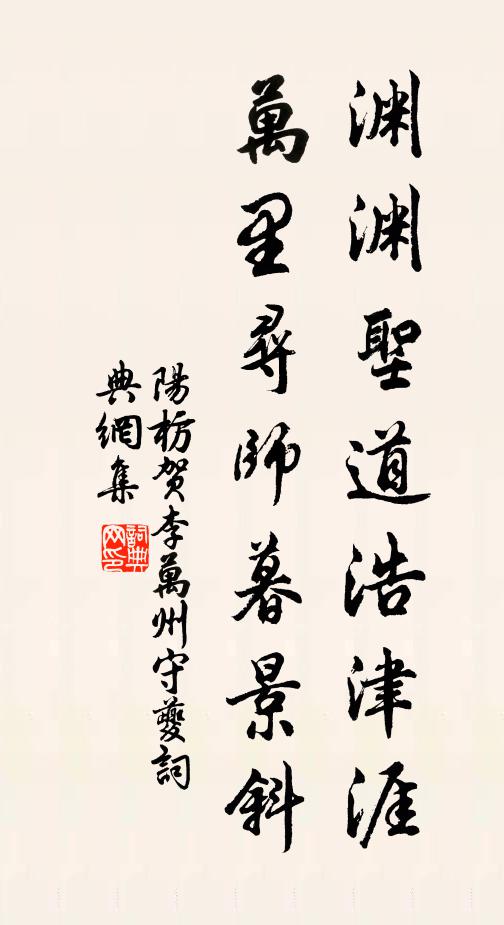 渊渊聖道浩津涯
萬里尋師暮景斜
陽枋贺李萬州守夔詞
典網集
詞典
网印